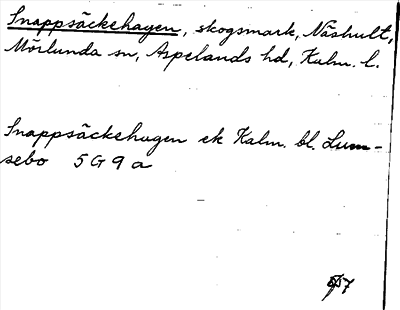 Snappsäckehagen, skogsmark, Näshult,
Mörlunda sn, Aspelands hd, Kalm. l.
Snappsäckehagen ek Kalm. bl. Lum-
sebo 5 G 9 a